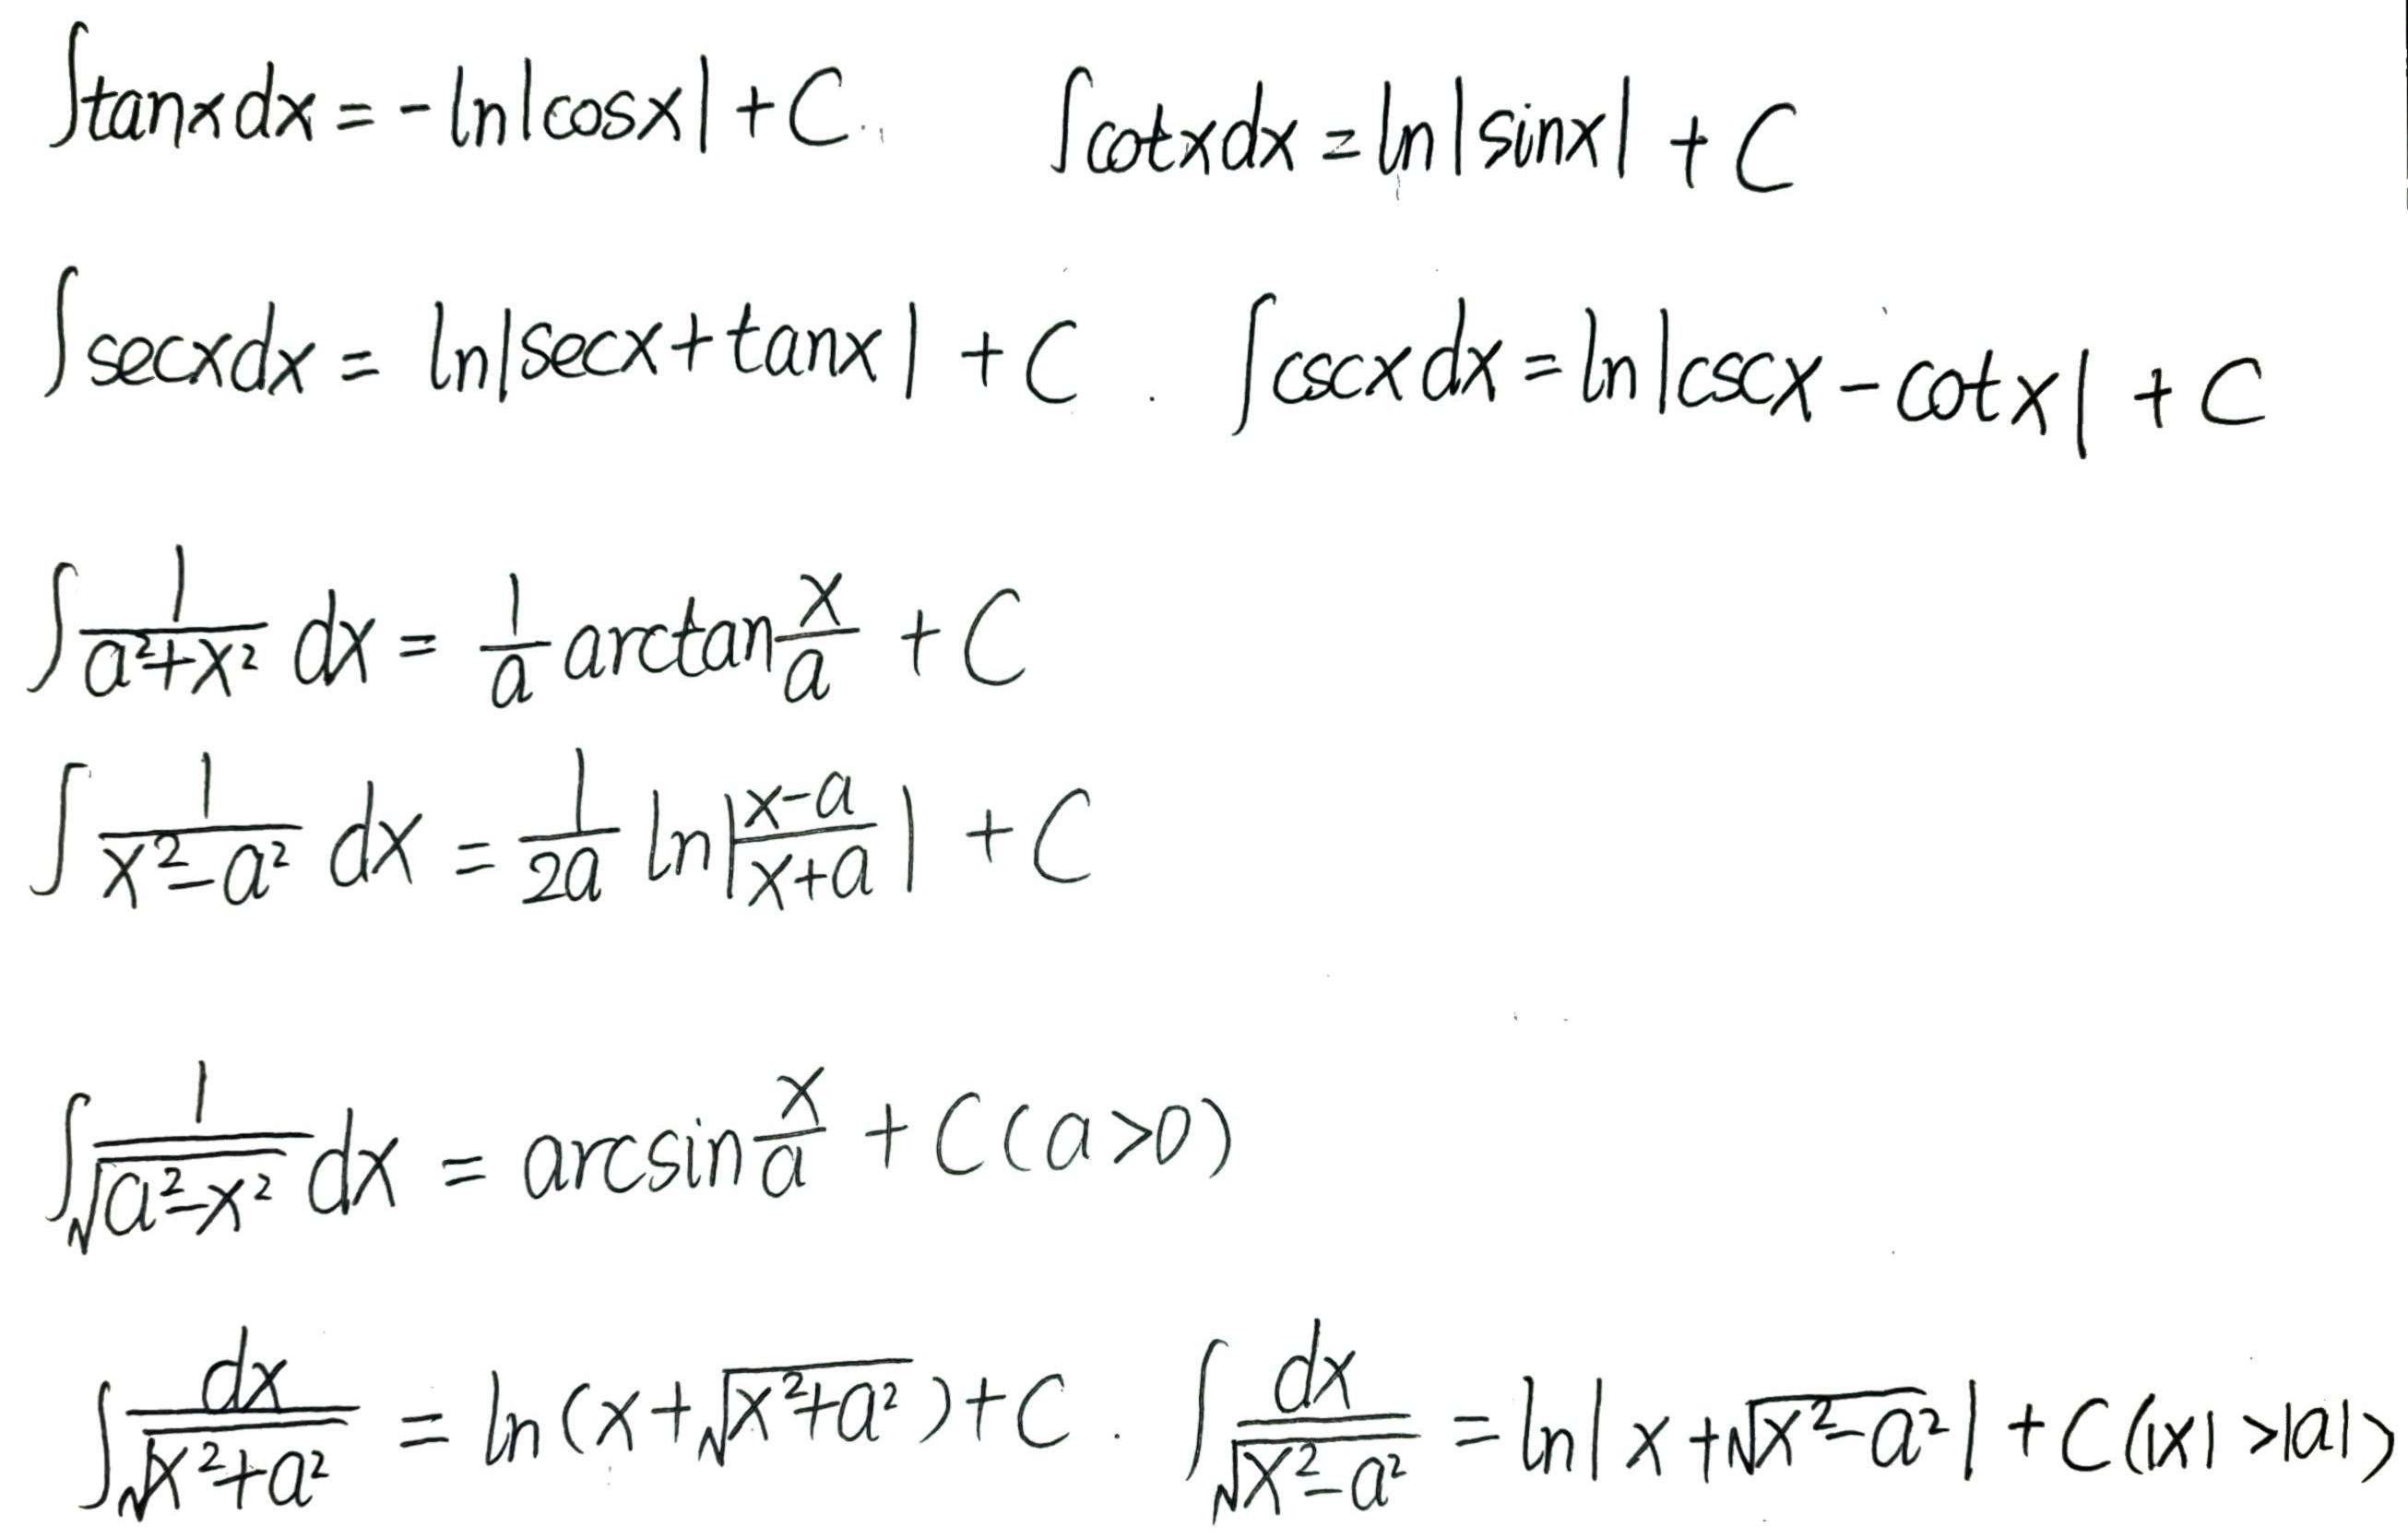 ∫tanxdx = -ln|cosx| + C. ∫cotxdx = ln|sinx| + C
∫secxdx = ln|secx+tanx| + C. ∫cscxdx = ln|cscx-cotx| + C
∫\frac{1}{a²+x²}dx = \frac{1}{a}arctan\frac{x}{a} + C
∫\frac{1}{x²-a²}dx = \frac{1}{2a}ln|\frac{x-a}{x+a}| + C
∫\frac{1}{\sqrt{a²-x²}}dx = arcsin\frac{x}{a} + C (a>0)
∫\frac{dx}{\sqrt{x²+a²}} = ln(x+\sqrt{x²+a²})+C. ∫\frac{dx}{\sqrt{x²-a²}} = ln|x+\sqrt{x²-a²}| + C (|x|>|a|)